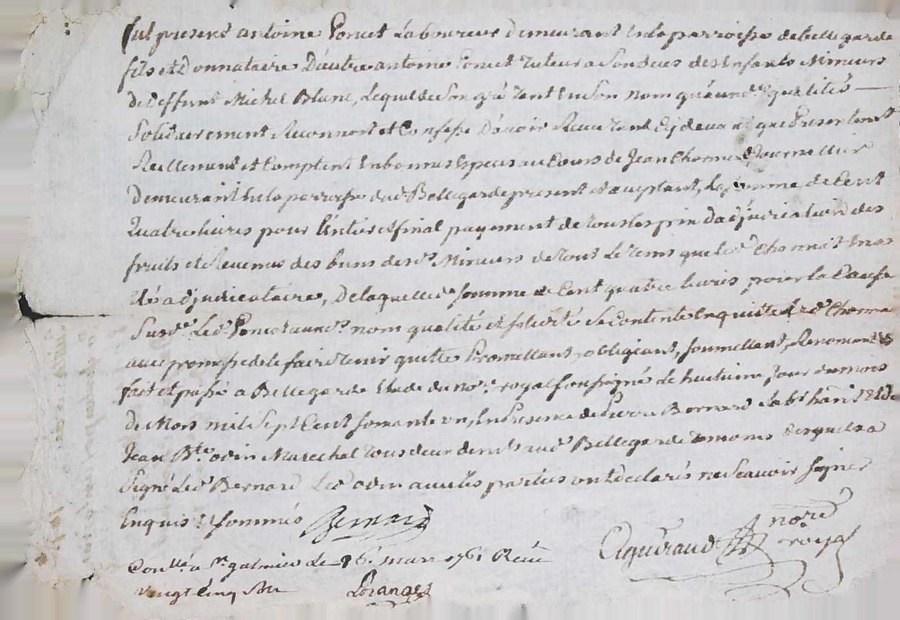 fut present antoine Poncet Laboureur demeurant en la parroisse de bellegarde
fils et Donnataire D'autre antoine Poncet Tuteur a Son deces des Enfants Mineurs
de deffunt Michel Blanc, Lequel de Son gré tant En Son nom qu'aux d. qualités
Solidairement Reconnoit et Confesse D'avoir Receu tant Cy devant que Presentement
Reellement et Comptant En bonnes Especes au Cours de Jean Thomas
Demeurant En la parroisse dud. Bellegarde present et acceptant, La somme de Cent
Quatre livres pour L'entier et final payement de tous les prix D'adjudication des
fruits et Revenus des biens desd. Mineurs de tout Le tems que led. Thomas En a
Eté adjudicataire, De laquelle d. somme de Cent quatre livres pour la Cause
Susd. Led. Poncet aux d. nom qualités et solidité Se Contente En quitte led. Thomas
avec promesse de le faire tenir quitte Promettant, obligeant, soumettant, Renonçant
fait et passé a Bellegarde Etude du nore. royal soussigné le huitieme Jour du mois
de Mars mil Sept Cent soixante un, En Presence de Pierre Bernard et de
Jean Bte. odin Marechal tous deux dem. aud. Bellegarde temoins
Signé Led. Bernard Led. odin avec les parties ont declarés ne Scavoir signer
Enquis et sommés Bernard
Conllé a St. galmier le 16 mars 1761 Reçu
vingt Cinq Sols
Agueraud nore royal